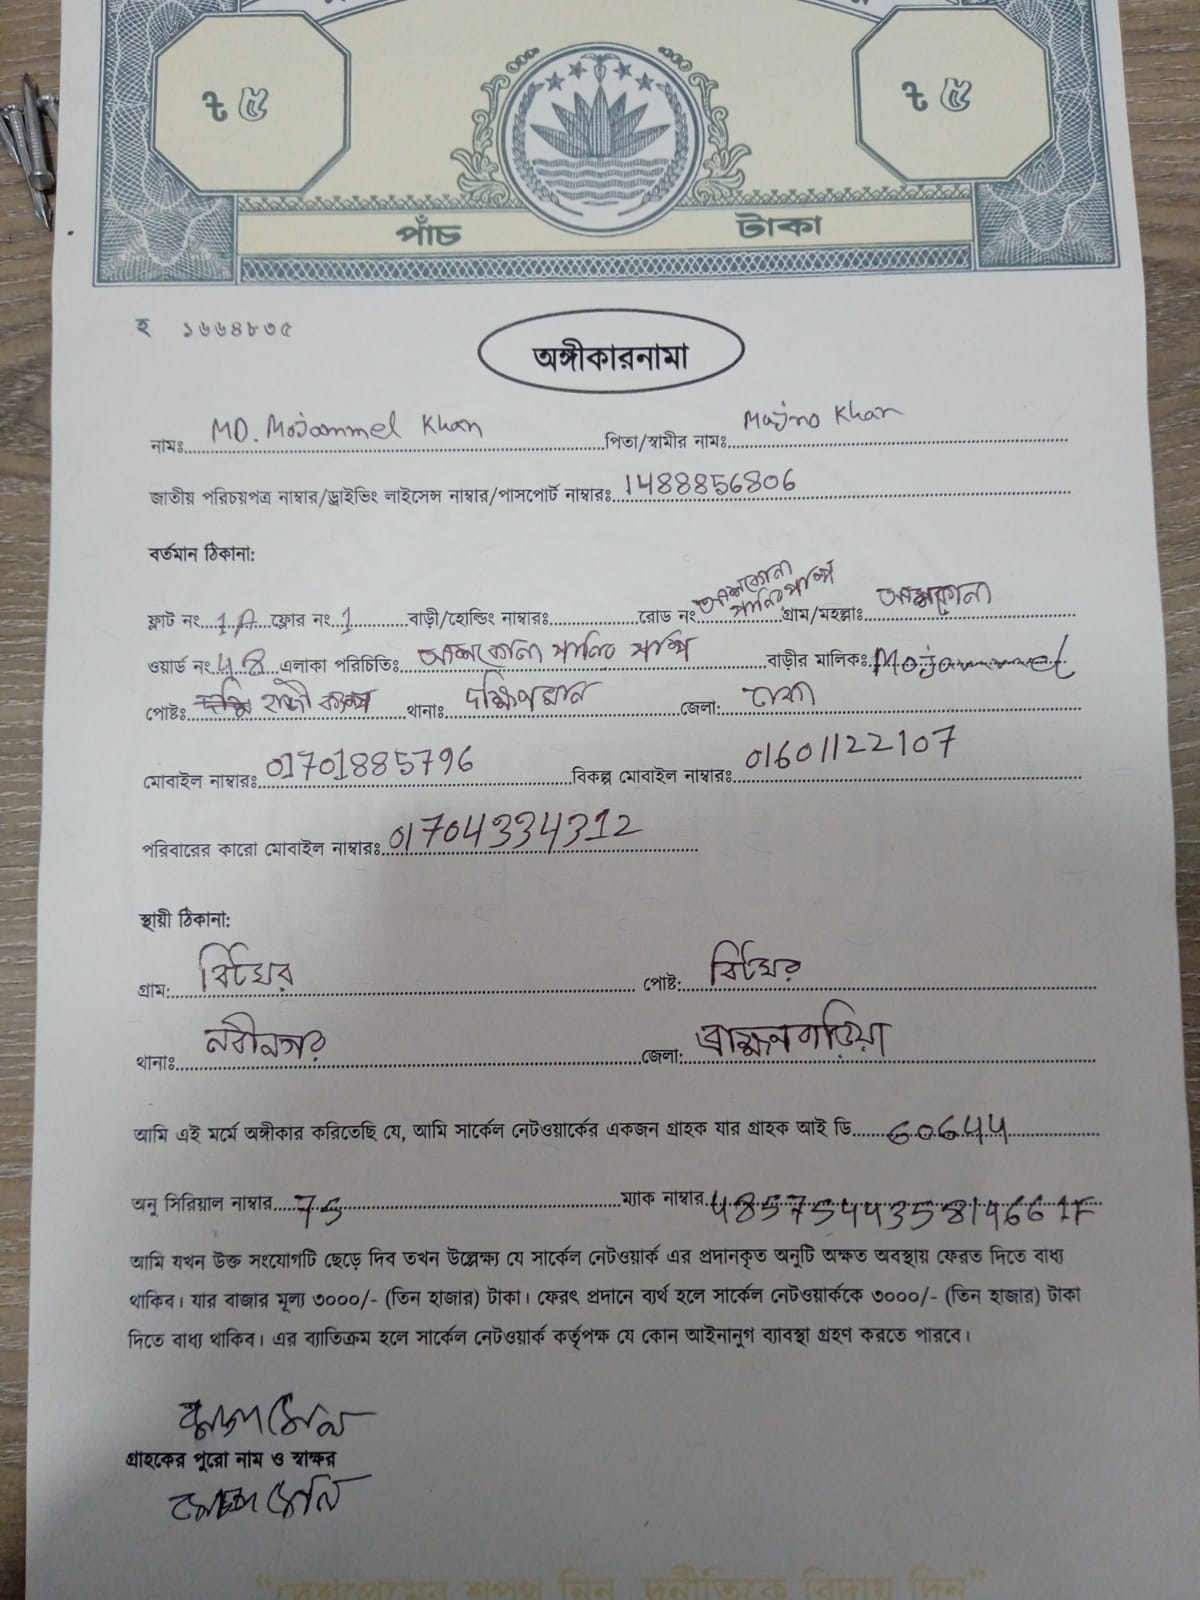 ৳ ৫ ৳ ৫
পাঁচ টাকা
হ ১৬৬৪৮৩৫
অঙ্গীকারনামা
নামঃ MD. Mojammel Khan পিতা/স্বামীর নামঃ Majno Khan
জাতীয় পরিচয়পত্র নাম্বার/ড্রাইভিং লাইসেন্স নাম্বার/পাসপোর্ট নাম্বারঃ 1488856806
বর্তমান ঠিকানা:
ফ্লাট নং 1A ফ্লোর নং 1 বাড়ী/হোল্ডিং নাম্বারঃ রোড নং আশকোনা পানির পাম্প গ্রাম/মহল্লাঃ আশকোনা
ওয়ার্ড নং 48 এলাকা পরিচিতিঃ আশকোনা পানির পাম্প বাড়ীর মালিকঃ Mojammel
পোষ্টঃ হাজী ক্যাম্প থানাঃ দক্ষিণখান জেলা: ঢাকা
মোবাইল নাম্বারঃ 01701885796 বিকল্প মোবাইল নাম্বারঃ 01601122107
পরিবারের কারো মোবাইল নাম্বারঃ 01704334312
স্থায়ী ঠিকানা:
গ্রাম: বিটঘর পোষ্ট: বিটঘর
থানাঃ নবীনগর জেলা: ব্রাহ্মনবাড়িয়া
আমি এই মর্মে অঙ্গীকার করিতেছি যে, আমি সার্কেল নেটওয়ার্কের একজন গ্রাহক যার গ্রাহক আই ডি 60644
অনু সিরিয়াল নাম্বার 75 ম্যাক নাম্বার 485754435814661F
আমি যখন উক্ত সংযোগটি ছেড়ে দিব তখন উল্লেক্ষ্য যে সার্কেল নেটওয়ার্ক এর প্রদানকৃত অনুটি অক্ষত অবস্থায় ফেরত দিতে বাধ্য
থাকিব। যার বাজার মূল্য ৩০০০/- (তিন হাজার) টাকা। ফেরৎ প্রদানে ব্যর্থ হলে সার্কেল নেটওয়ার্ককে ৩০০০/- (তিন হাজার) টাকা
দিতে বাধ্য থাকিব। এর ব্যাতিক্রম হলে সার্কেল নেটওয়ার্ক কর্তৃপক্ষ যে কোন আইনানুগ ব্যাবস্থা গ্রহণ করতে পারবে।
গ্রাহকের পুরো নাম ও স্বাক্ষর
“দেশপ্রেমের শপথ নিন, দুর্নীতিকে বিদায় দিন”